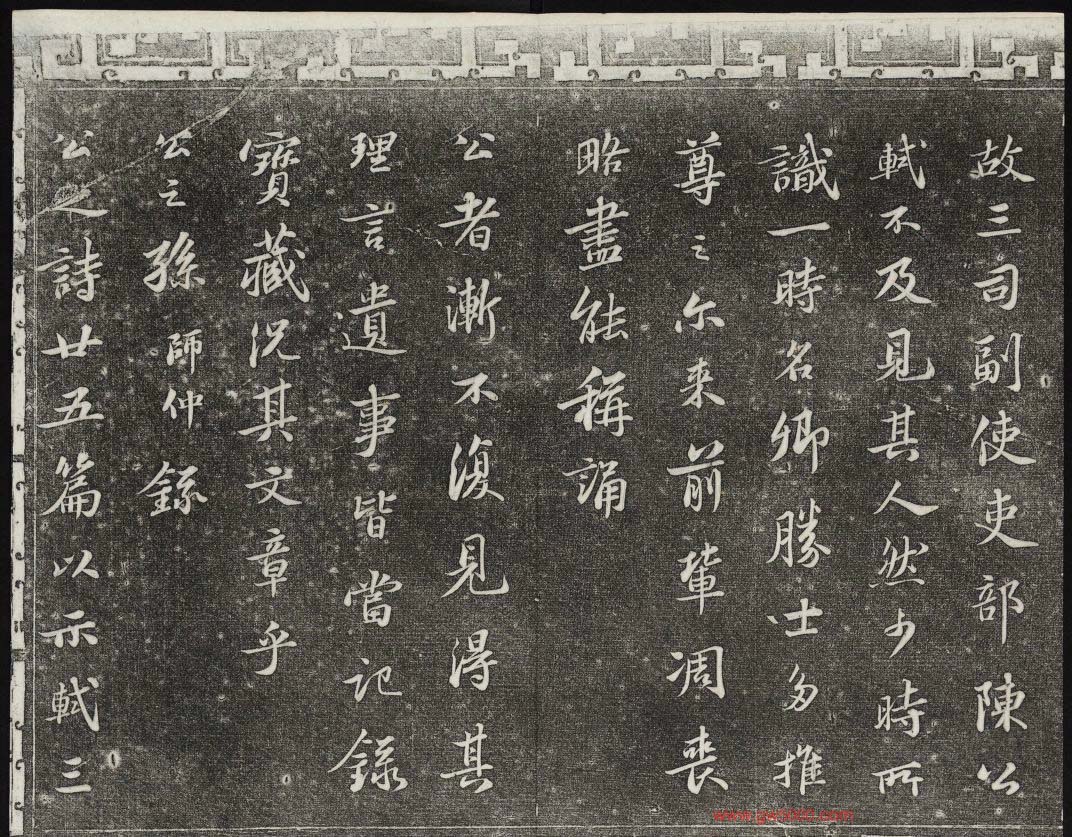 故三司副使吏部陳公
軾不及見其人然少時所
識一時名卿勝士多推
尊之尓来前輩凋喪
略盡能稱誦
公者漸不復見得其
理言遺事皆當記錄
寶藏況其文章乎
公之孫師仲錄
公之詩廿五篇以示軾三